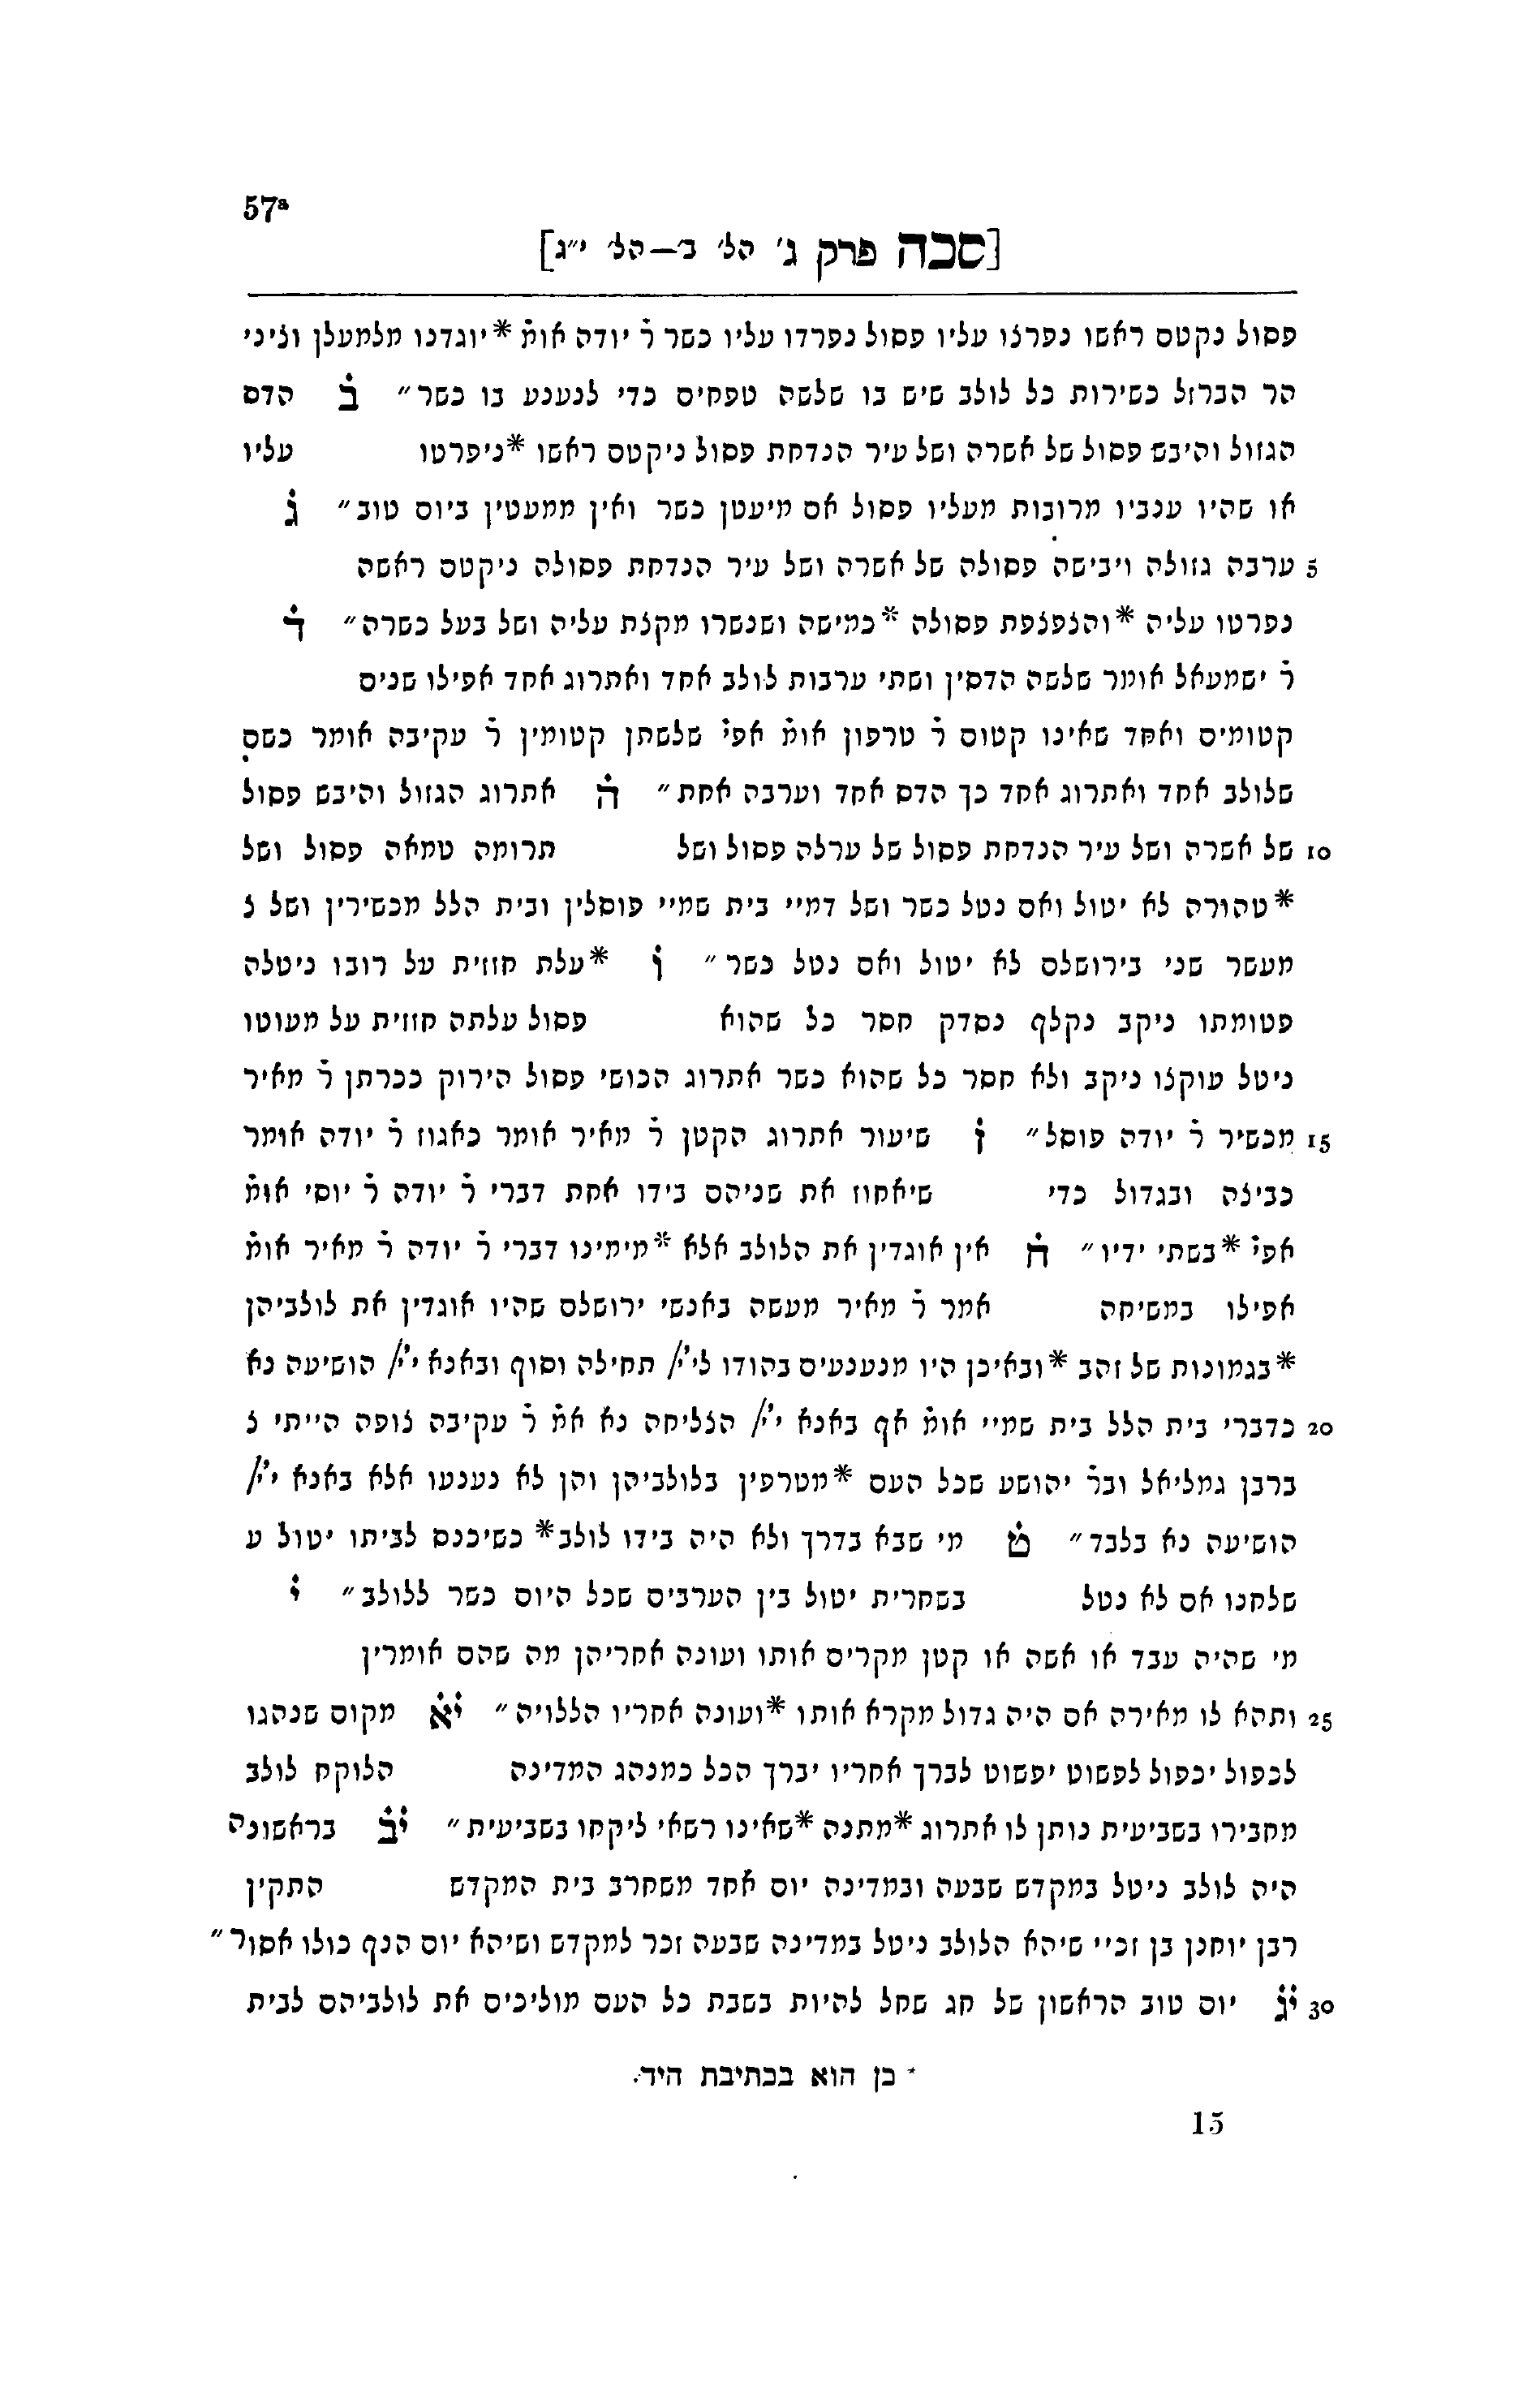 57a
[סכה פרק ג' הל' ב'—הל' י״ג]
פסול נקטם ראשו נפרצו עליו פסול נפרדו עליו כשר ר̇ יודה אומ̇ *יוגדנו מלמעלן וציני
הר הברזל כשירות כל לולב שיש בו שלשה טפחים כדי לנענע בו כשר״ ב̇ הדס
הגזול והיבש פסול של אשרה ושל עיר הנדחת פסול ניקטם ראשו *ניפרטו עליו
או שהיו ענביו מרובות מעליו פסול אם מיעטן כשר ואין ממעטין ביום טוב״ ג̇
5 ערבה גזולה ויבישה פסולה של אשרה ושל עיר הנדחת פסולה ניקטם ראשה
נפרטו עליה *והצפצפת פסולה *כמישה ושנשרו מקצת עליה ושל בעל כשרה״ ד̇
ר̇ ישמעאל אומר שלשה הדסין ושתי ערבות לולב אחד ואתרוג אחד אפילו שנים
קטומים ואחד שאינו קטום ר̇ טרפון אומ̇ אפי̇ שלשתן קטומין ר̇ עקיבה אומר כשם
שלולב אחד ואתרוג אחד כך הדס אחד וערבה אחת״ ה̇ אתרוג הגזול והיבש פסול
10 של אשרה ושל עיר הנדחת פסול של ערלה פסול ושל תרומה טמאה פסול ושל
*טהורה לא יטול ואם נטל כשר ושל דמיי בית שמיי פוסלין ובית הלל מכשירין ושל צ
מעשר שני בירושלם לא יטול ואם נטל כשר״ ו̇ *עלת חזזית על רובו ניטלה
פטומתו ניקב נקלף נסדק חסר כל שהוא פסול עלתה חזזית על מעוטו
ניטל עוקצו ניקב ולא חסר כל שהוא כשר אתרוג הכושי פסול הירוק ככרתן ר̇ מאיר
15 מכשיר ר̇ יודה פוסל״ ז̇ שיעור אתרוג הקטן ר̇ מאיר אומר כאגוז ר̇ יודה אומר
כביצה ובגדול כדי שיאחוז את שניהם בידו אחת דברי ר̇ יודה ר̇ יוסי אומ̇
אפי̇ *בשתי ידיו״ ח̇ אין אוגדין את הלולב אלא *מימינו דברי ר̇ יודה ר̇ מאיר אומ̇
אפילו במשיחה אמר ר̇ מאיר מעשה באנשי ירושלם שהיו אוגדין את לולביהן
*בגמונות של זהב *ובאיכן היו מנענעים בהודו לי̇י/ תחילה וסוף ובאנא י̇י/ הושיעה נא
20 כדברי בית הלל בית שמיי אומ̇ אף באנא י̇י/ הצליחה נא אמ̇ ר̇ עקיבה צופה הייתי צ
ברבן גמליאל ובר̇ יהושע שכל העם *מטרפין בלולביהן והן לא נענעו אלא באנא י̇י/
הושיעה נא בלבד״ ט̇ מי שבא בדרך ולא היה בידו לולב* כשיכנס לביתו יטול ע
שלחנו אם לא נטל בשחרית יטול בין הערבים שכל היום כשר ללולב״ י̇
מי שהיה עבד או אשה או קטן מקרים אותו ועונה אחריהן מה שהם אומרין
25 ותהא לו מאירה אם היה גדול מקרא אותו *ועונה אחריו הללויה״ י̇א̇ מקום שנהגו
לכפול יכפול לפשוט יפשוט לברך אחריו יברך הכל כמנהג המדינה הלוקח לולב
מחבירו בשביעית נותן לו אתרוג *מתנה *שאינו רשאי ליקחו בשביעית״ י̇ב̇ בראשונה
היה לולב ניטל במקדש שבעה ובמדינה יום אחד משחרב בית המקדש התקין
רבן יוחנן בן זכיי שיהא הלולב ניטל במדינה שבעה זכר למקדש ושיהא יום הנף כולו אסור״
30 י̇ג̇ יום טוב הראשון של חג שחל להיות בשבת כל העם מוליכים את לולביהם לבית
* כן הוא בכתיבת היד.
15